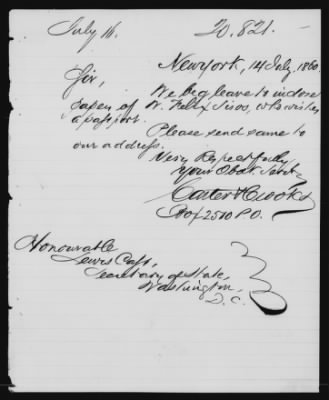 July 16.
20.821.
New York, 14 July, 1860.
Sir,
We beg leave to inclose
papers of Mr. Felix Sisos, who wishes
a passport.
Please send same to
our address.
Very Respectfully
Your Obdt Servts
Carter & Crooks
Box 2510 P.O.
Honourable
Lewis Cass,
Secretary of State,
Washington,
D. C.